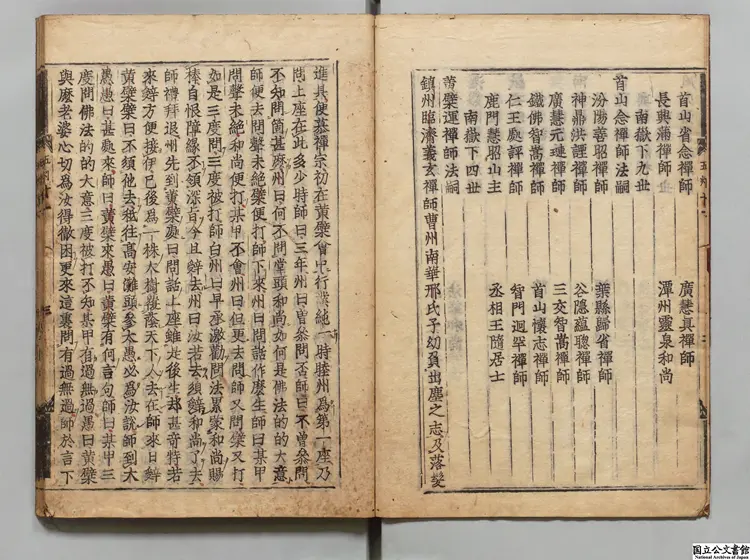 首山省念禪師　廣慧真禪師
長興滿禪師　潭州靈泉和尚
南嶽下九世
首山念禪師法嗣
汾陽善昭禪師　葉縣歸省禪師
神鼎洪諲禪師　谷隱蘊聰禪師
廣慧元璉禪師　三交智嵩禪師
鐵佛智嵩禪師　首山懷志禪師
仁王處評禪師　智門迥罕禪師
鹿門慧昭山主　丞相王隨居士
南嶽下四世
黃檗運禪師法嗣
鎮州臨濟義玄禪師曹州南華邢氏子幼負出塵之志及落髮
進具便慕禪宗初在黃檗會中行業純一時睦州為第一座乃
問上座在此多少時師曰三年州曰曾參問否師曰不曾參問
不知問箇甚麼州曰何不問堂頭和尚如何是佛法的的大意
師便去問聲未絕檗便打師下來州曰問話作麼生師曰某甲
問聲未絕和尚便打某甲不會州曰但更去問師又問檗又打
如是三度問三度被打師白州曰早承激勸問法累蒙和尚賜
棒自恨障緣不領深旨今且辭去州曰汝若去須辭和尚了去
師禮拜退州先到黃檗處曰問話上座雖是後生却甚奇特若
來辭方便接伊已後為一株大樹覆蔭天下人去在師來日辭
黃檗檗曰不須他去秖往高安灘頭參大愚必為汝說師到大
愚愚曰甚處來師曰黃檗來愚曰黃檗有何言句師曰某甲三
度問佛法的的大意三度被打不知某甲有過無過愚曰黃檗
與麼老婆心切為汝得徹困更來這裏問有過無過師於言下
国立公文書館
National Archives of Japan